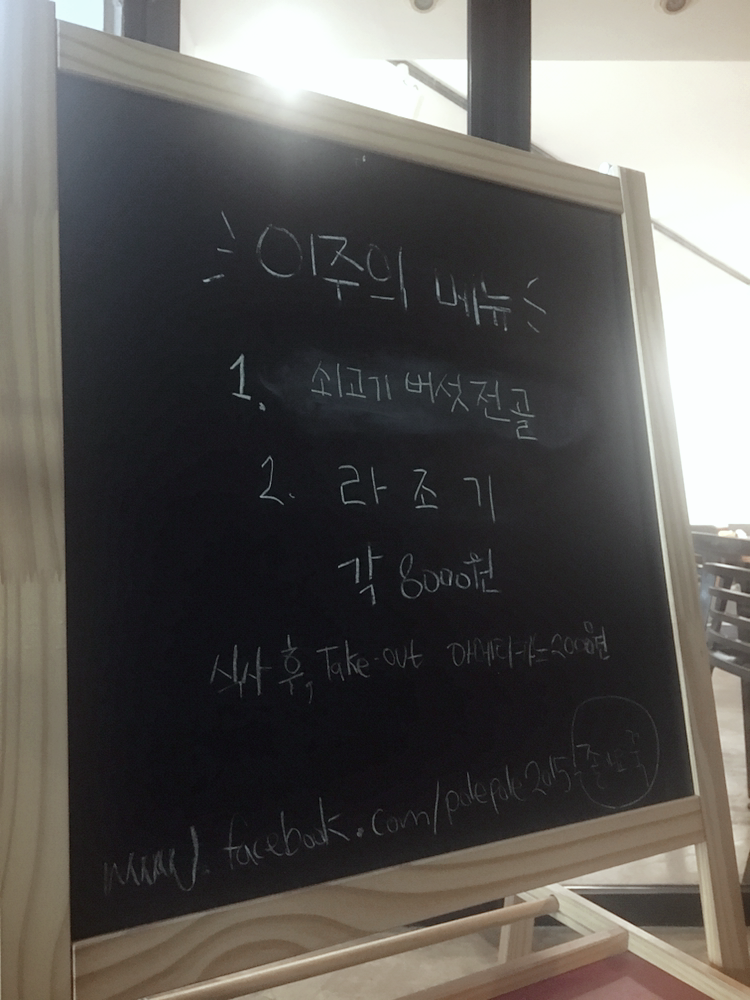 이주의 메뉴
1. 쇠고기 버섯전골
2. 라조기
각 8000원
식사 후, Take-out 아메리카노 2000원
www.facebook.com/polepole2015